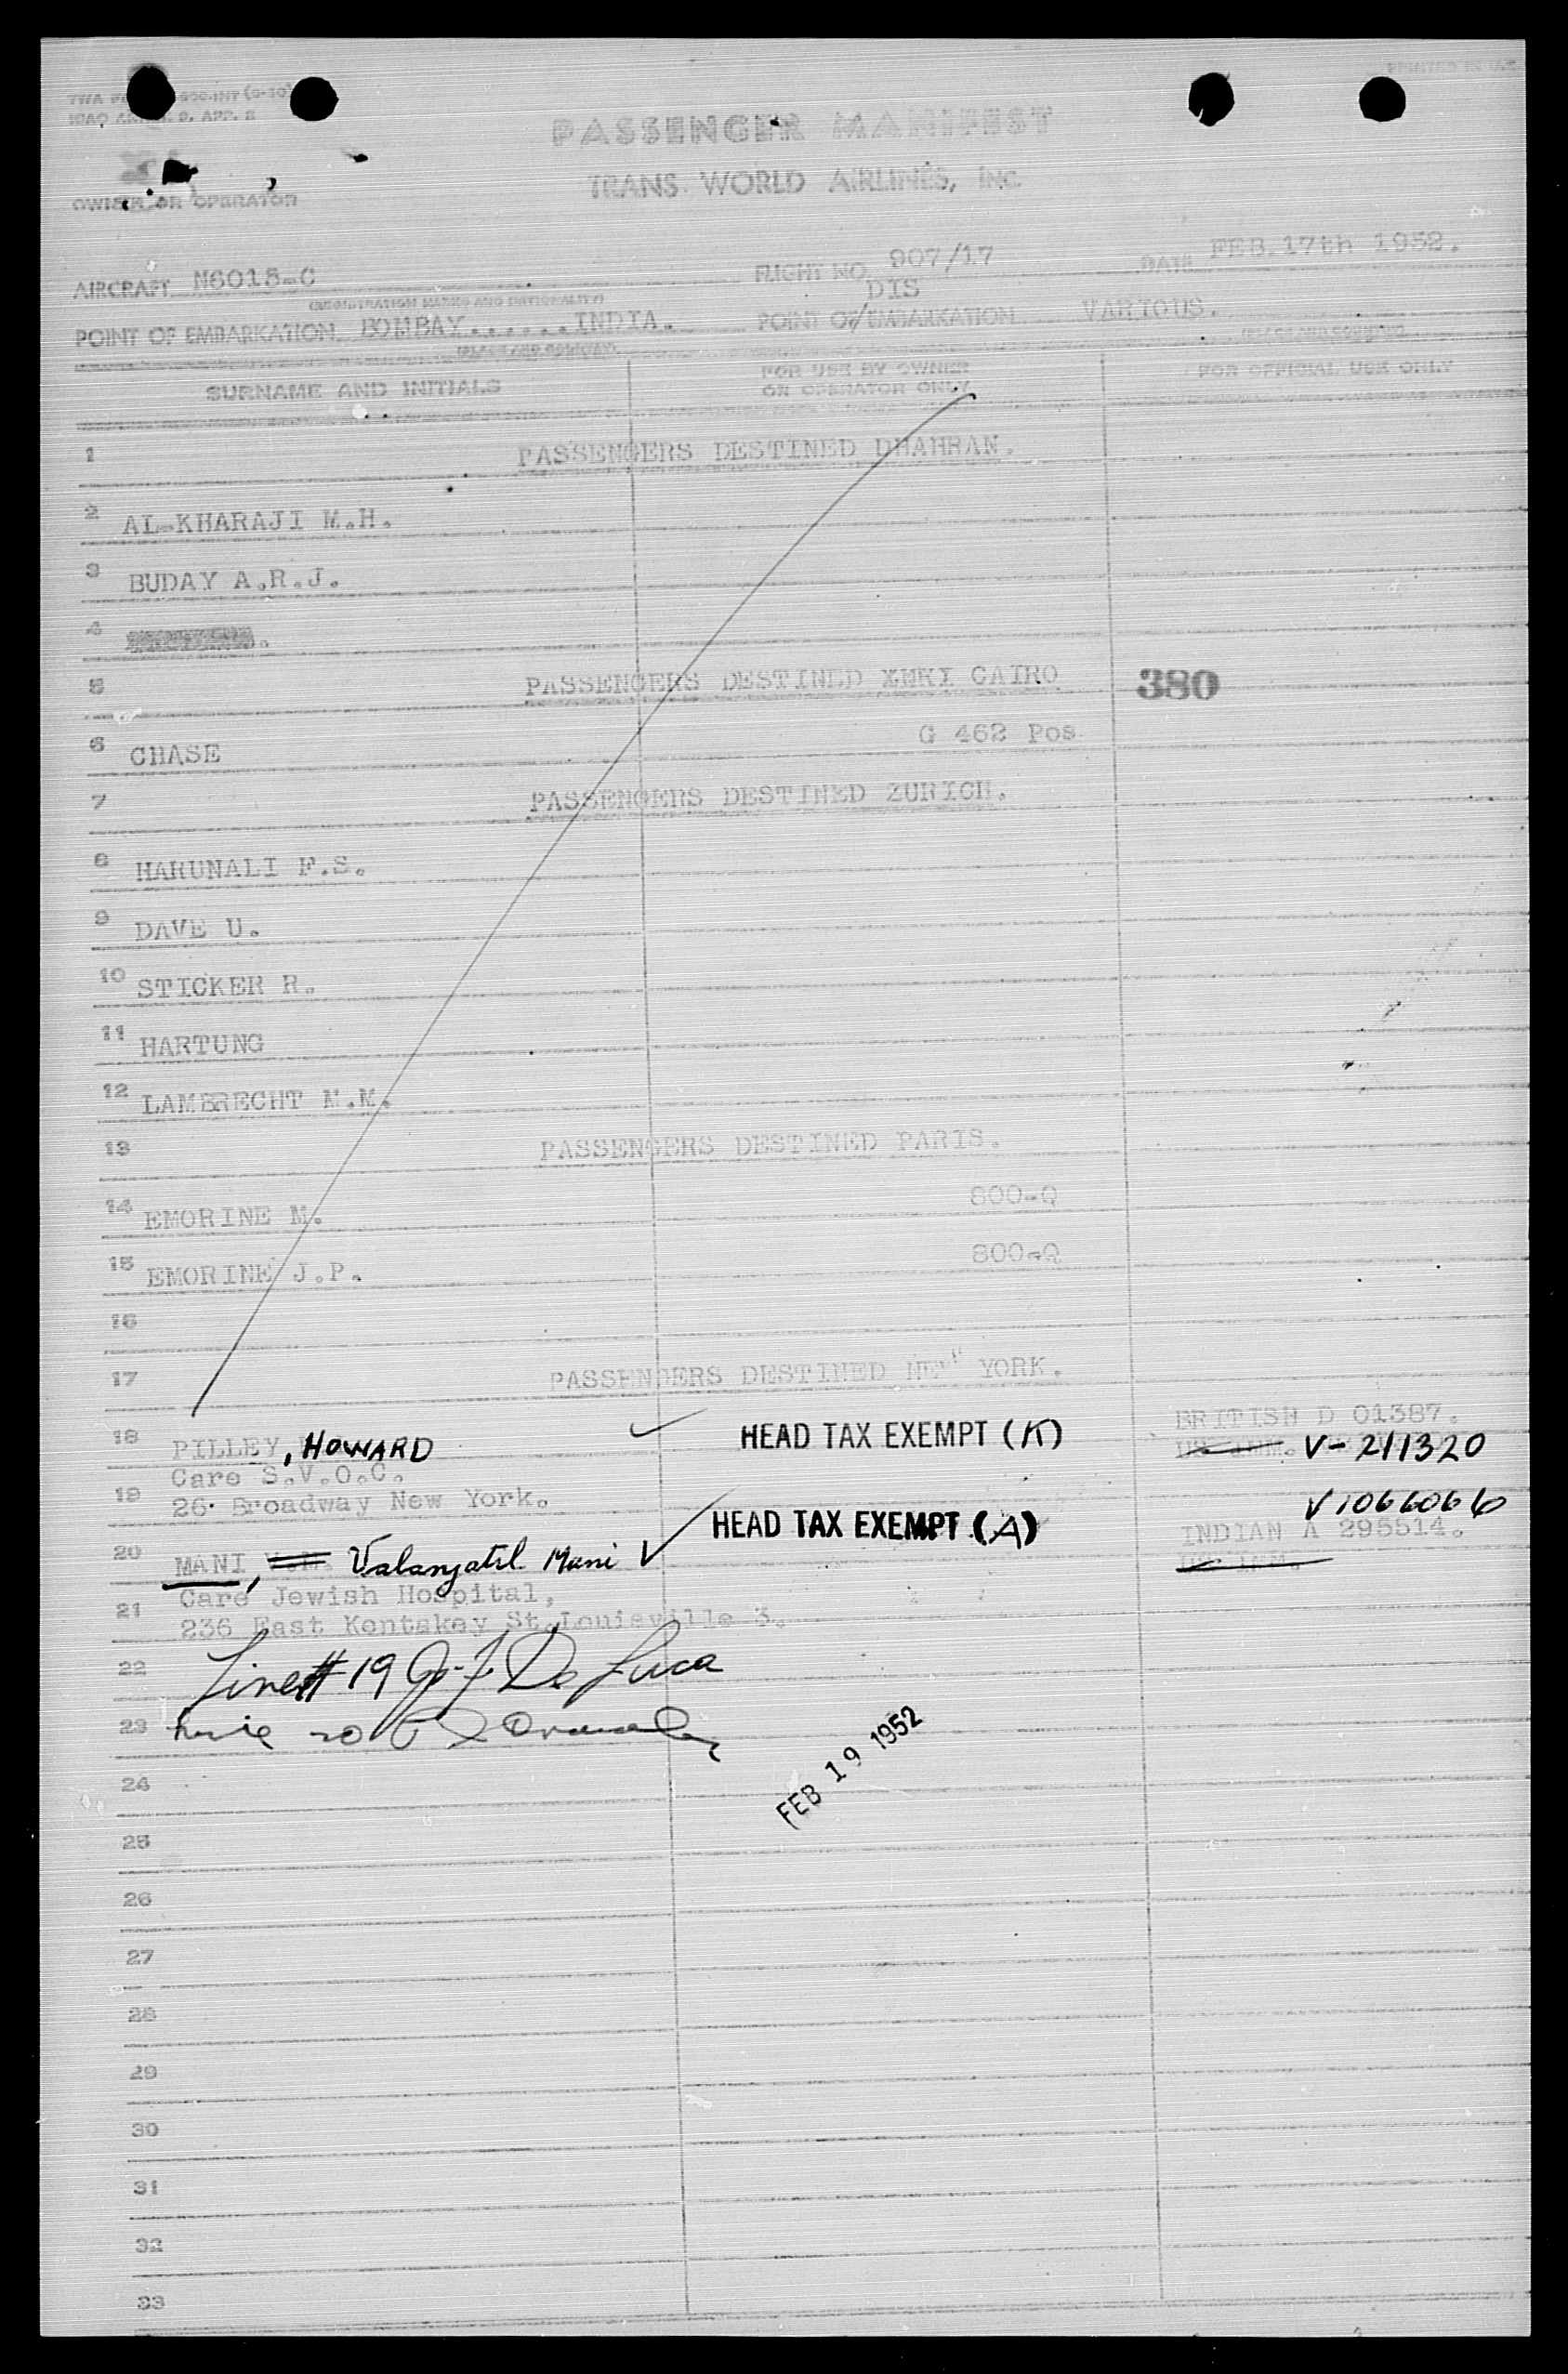 PRINTED IN U.S.
ICAO ANNEX 9, APP. 2
PASSENGER MANIFEST
TRANS WORLD AIRLINES, INC.
OWNER OR OPERATOR
AIRCRAFT N6018-C FLIGHT NO. 907/17 DATE FEB.17th 1952.
(REGISTRATION MARKS AND NATIONALITY) DIS
POINT OF EMBARKATION BOMBAY......INDIA. POINT OF/EMBARKATION VARIOUS.
(PLACE AND COUNTRY) (PLACE AND COUNTRY)
SURNAME AND INITIALS FOR USE BY OWNER OR OPERATOR ONLY FOR OFFICIAL USE ONLY
1 PASSENGERS DESTINED DHAHRAN.
2 AL-KHARAJI M.H.
3 BUDAY A.R.J.
4
5 PASSENGERS DESTINED CAIRO 380
6 CHASE G 462 Pos
7 PASSENGERS DESTINED ZURICH.
8 HARUNALI F.S.
9 DAVE U.
10 STICKER R.
11 HARTUNG
12 LAMBRECHT M.M.
13 PASSENGERS DESTINED PARIS.
14 EMORINE M. 800-Q
15 EMORINE J.P. 800-Q
16
17 PASSENDERS DESTINED NEW YORK.
18 PILLEY, HOWARD HEAD TAX EXEMPT (K) BRITISH D 01387.
V-211320
Care S.V.O.C.
19 26 Broadway New York.
V1066066
HEAD TAX EXEMPT (A) INDIAN A 295514.
20 MANI, Valanjatil Mani
Care Jewish Hospital,
21 236 East Kentakey St.Louisville 3.
22 Line # 19 J. F. De Luca
23 20
FEB 19 1952
24
25
26
27
28
29
30
31
32
33